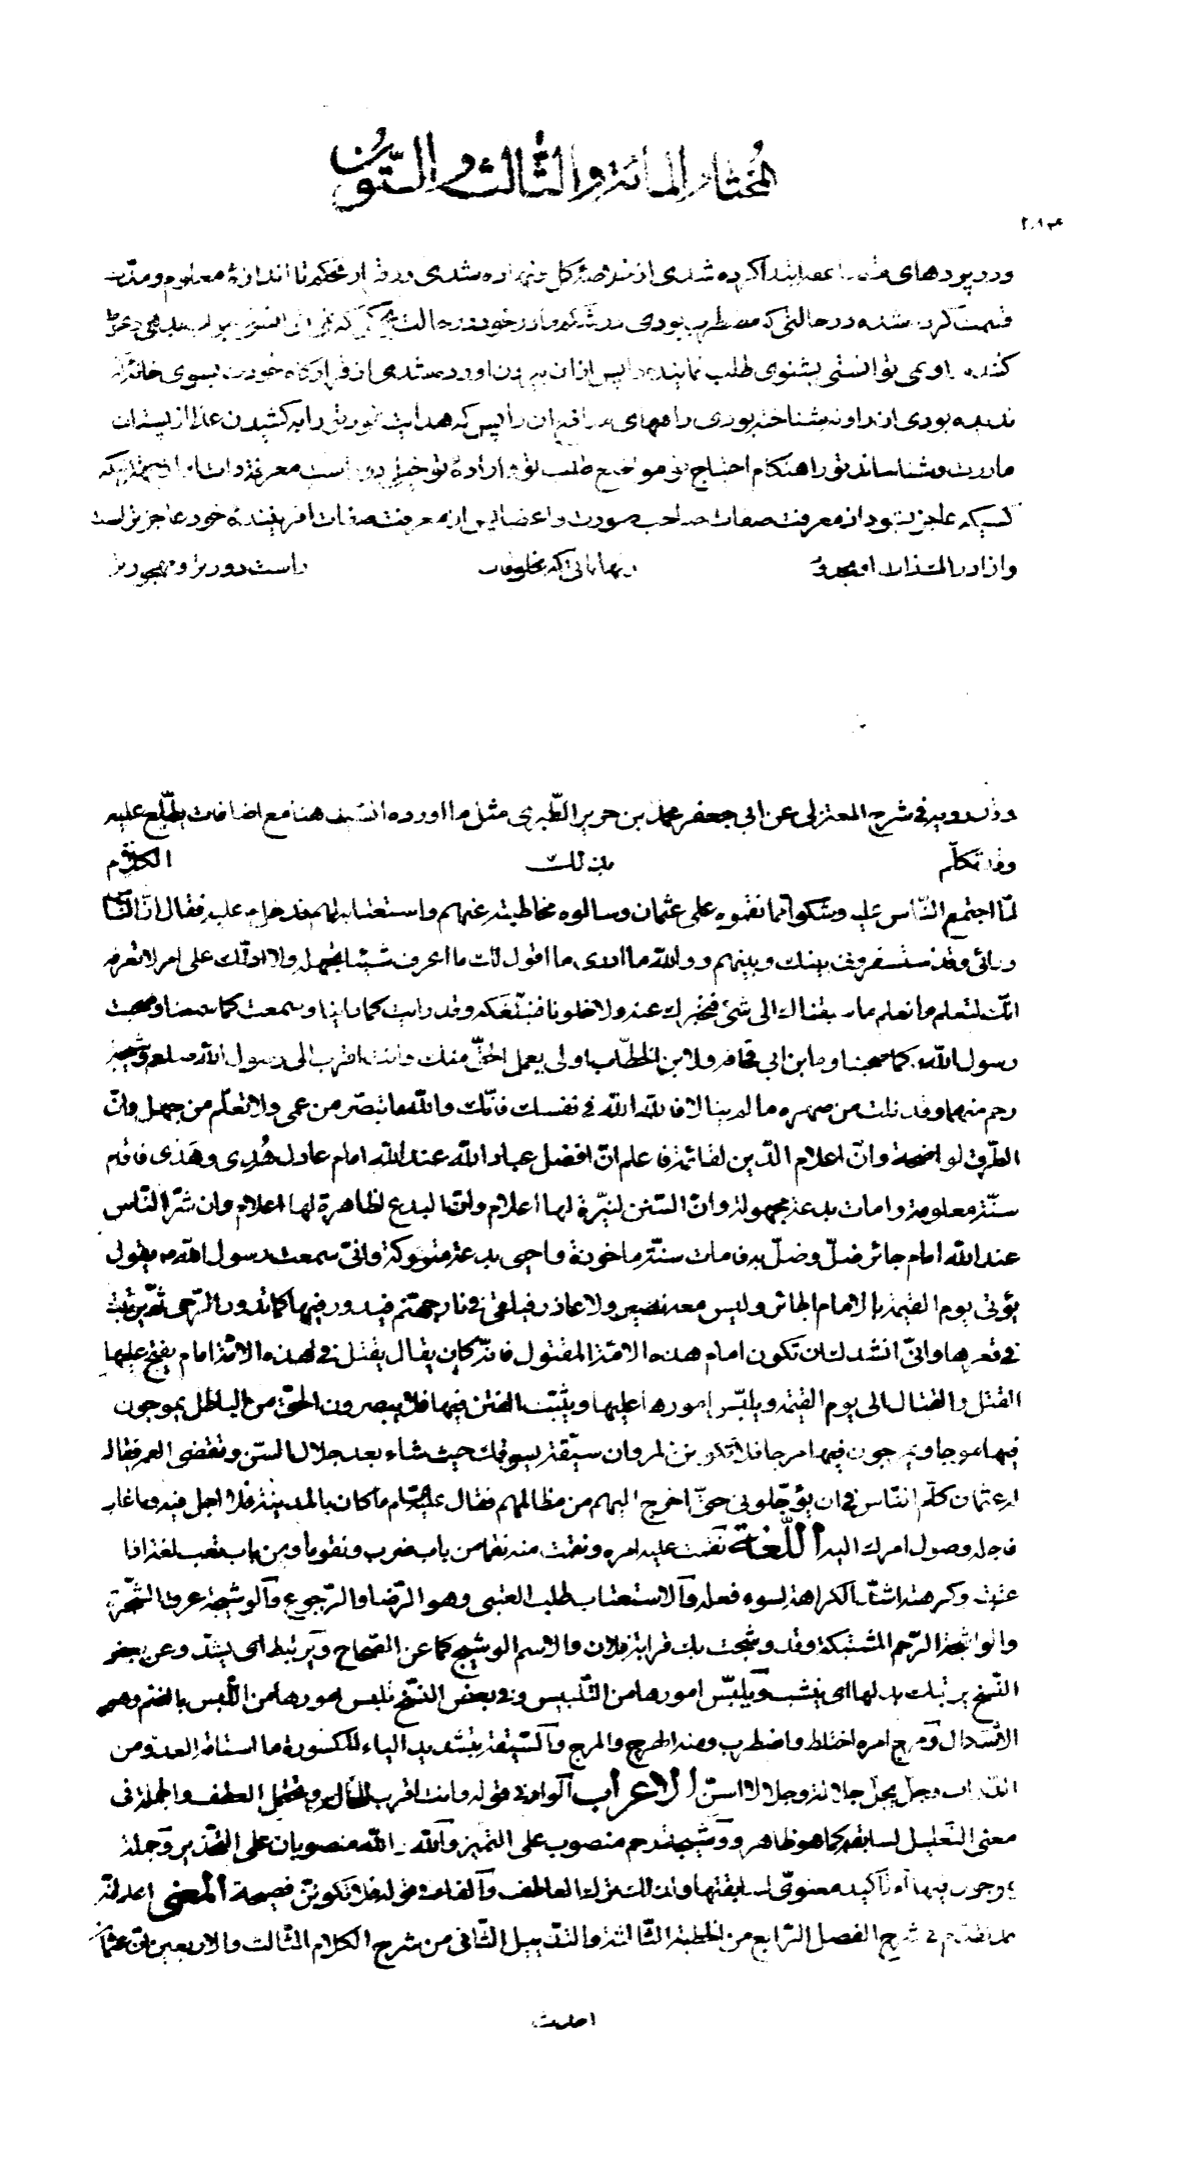 المختار المائة والثالث والستون
در پردهای ابتدا کرده شدی از خلاصهٔ کل و نهاده شدی در قرار محکم تا اندازهٔ معلوم و مدّت
قسمت کرده شده در حالتی که مضطرب بودی در شکم مادر خود در حالت
کننده و نمی توانستی بشنوی طلب نماینده را پس از آن بیرون آورده شدی از قرارگاه خودت بسوی خانهٔ که
ندیده بودی آنرا و نشناخته بودی راههای منافع آن را پس که هدایت نمود تو را به کشیدن غذا از پستان
مادرت و شناساند تو را هنگام احتیاج تو مواضع طلب تو و اراده تو خیلی دور است
کسیکه عاجز شود از معرفت صفات صاحب صورت و اعضا پس او از معرفت صفات آفریننده خود عاجزتر است
و از ادراک مخلوقات است دورتر و مهجورتر
في شرح المعتزلي عن أبي جعفر محمد بن جرير الطّبري مثل ما أورده السّيّد هنا مع اضافات يطّلع عليه
الكلام
لمّا اجتمع النّاس عليه وشكوا ممّا نقموه على عثمان وسألوه مخاطبته عنهم واستعتابه لهم فدخل عليه فقال انّ النّاس
ورائي وقد استسفروني بينك وبينهم ووالله ما أدري ما أقول لك ما أعرف شيئا تجهله ولا أدلّك على أمر لا تعرفه
انّك لتعلم ما نعلم ما سبقناك إلى شيء فنخبرك عنه ولا خلونا فنبلّغكه وقد رأيت كما رأينا وسمعت كما سمعنا وصحبت
رسول الله كما صحبنا وما ابن أبي قحافة ولا ابن الخطّاب أولى بعمل الحقّ منك وأنت أقرب إلى رسول الله صلعم وشيجة
رحم منهما وقد نلت من صهره ما لم ينالا فالله الله في نفسك فانّك والله ما تبصّر من عمى ولا تعلّم من جهل وانّ
الطّرق لواضحة وانّ أعلام الدّين لقائمة فاعلم انّ أفضل عباد الله عند الله امام عادل هُدِى وهَدَى فأقام
سنّة معلومة وأمات بدعة مجهولة وانّ السّنن لنيّرة لها أعلام وانّ البدع لظاهرة لها أعلام وان شرّ النّاس
عند الله امام جائر ضلّ وضلّ به فأمات سنّة مأخوذة وأحيى بدعة متروكة وانّي سمعت رسول الله ص يقول
يؤتى يوم القيمة بالامام الجائر وليس معه نصير ولا عاذر فيلقى في نار جهنّم فيدور فيها كما تدور الرّحى ثمّ يرتبط
في قعرها وانّي أنشدك ان تكون امام هذه الامّة المقتول فانّه كان يقال يقتل في هذه الامّة امام يفتح عليها
القتل والقتال إلى يوم القيمة ويلبّس أمورها عليها ويثبّت الفتن فيها فلا يبصرون الحقّ من الباطل يموجون
فيها موجا ويمرجون فيها مرجا فلا تكوننّ لمروان سيّقة يسوقك حيث شاء بعد جلال السّنّ وتقضّى العمر فقال
له عثمان كلّم النّاس في ان يؤجّلوني حتّى أخرج اليهم من مظالمهم فقال عليه السّلام ما كان بالمدينة فلا أجل فيه وما غاب
فأجله وصول أمرك اليه اللّغة نقمت عليه امره ونقمت منه نقما من باب ضرب ونقوما ومن باب تعب لغة اذا
عتبته وكرهته اشدّ الكراهة لسوء فعله والاستعتاب طلب العتبى وهو الرّضا والرّجوع والوشيجة عرق الشّجرة
والواشجة الرّحم المشتبكة وقد وشجت بك قرابة فلان والاسم الوشيج كما عن الصّحاح ويرتبط أي يشدّ وعن بعض
النّسخ يرتبك بدلها أي ينشب ويلبّس أمورها من التّلبيس وفي بعض النّسخ تلبس أمورها من اللّبس بالضم وهو
الاشكال ومرج امره اختلط واضطرب ومنه الهرج والمرج والسّيّقة بتشديد الياء المكسورة ما استاقه العدوّ من
الدّواب وجلّ يجلّ جلالة وجلالا أسنّ الاعراب الواو في قوله وأنت أقرب للحال ويحتمل العطف والجملة في
معنى التّعليل لسابقه كما هو ظاهر ووشيجة رحم منصوب على التميز والله الله منصوبان على التّحذير وجملة
يموجون فيها تأكيد معنويّ لسابقتها ولذلك ترك العاطف والفاء في قوله فلا تكوننّ فصيحة المعنى اعلم انّه
قد تقدّم في شرح الفصل الرّابع من الخطبة الثّالثة والتّذييل الثّاني من شرح الكلام الثّالث والاربعين انّ عثمان
احدث